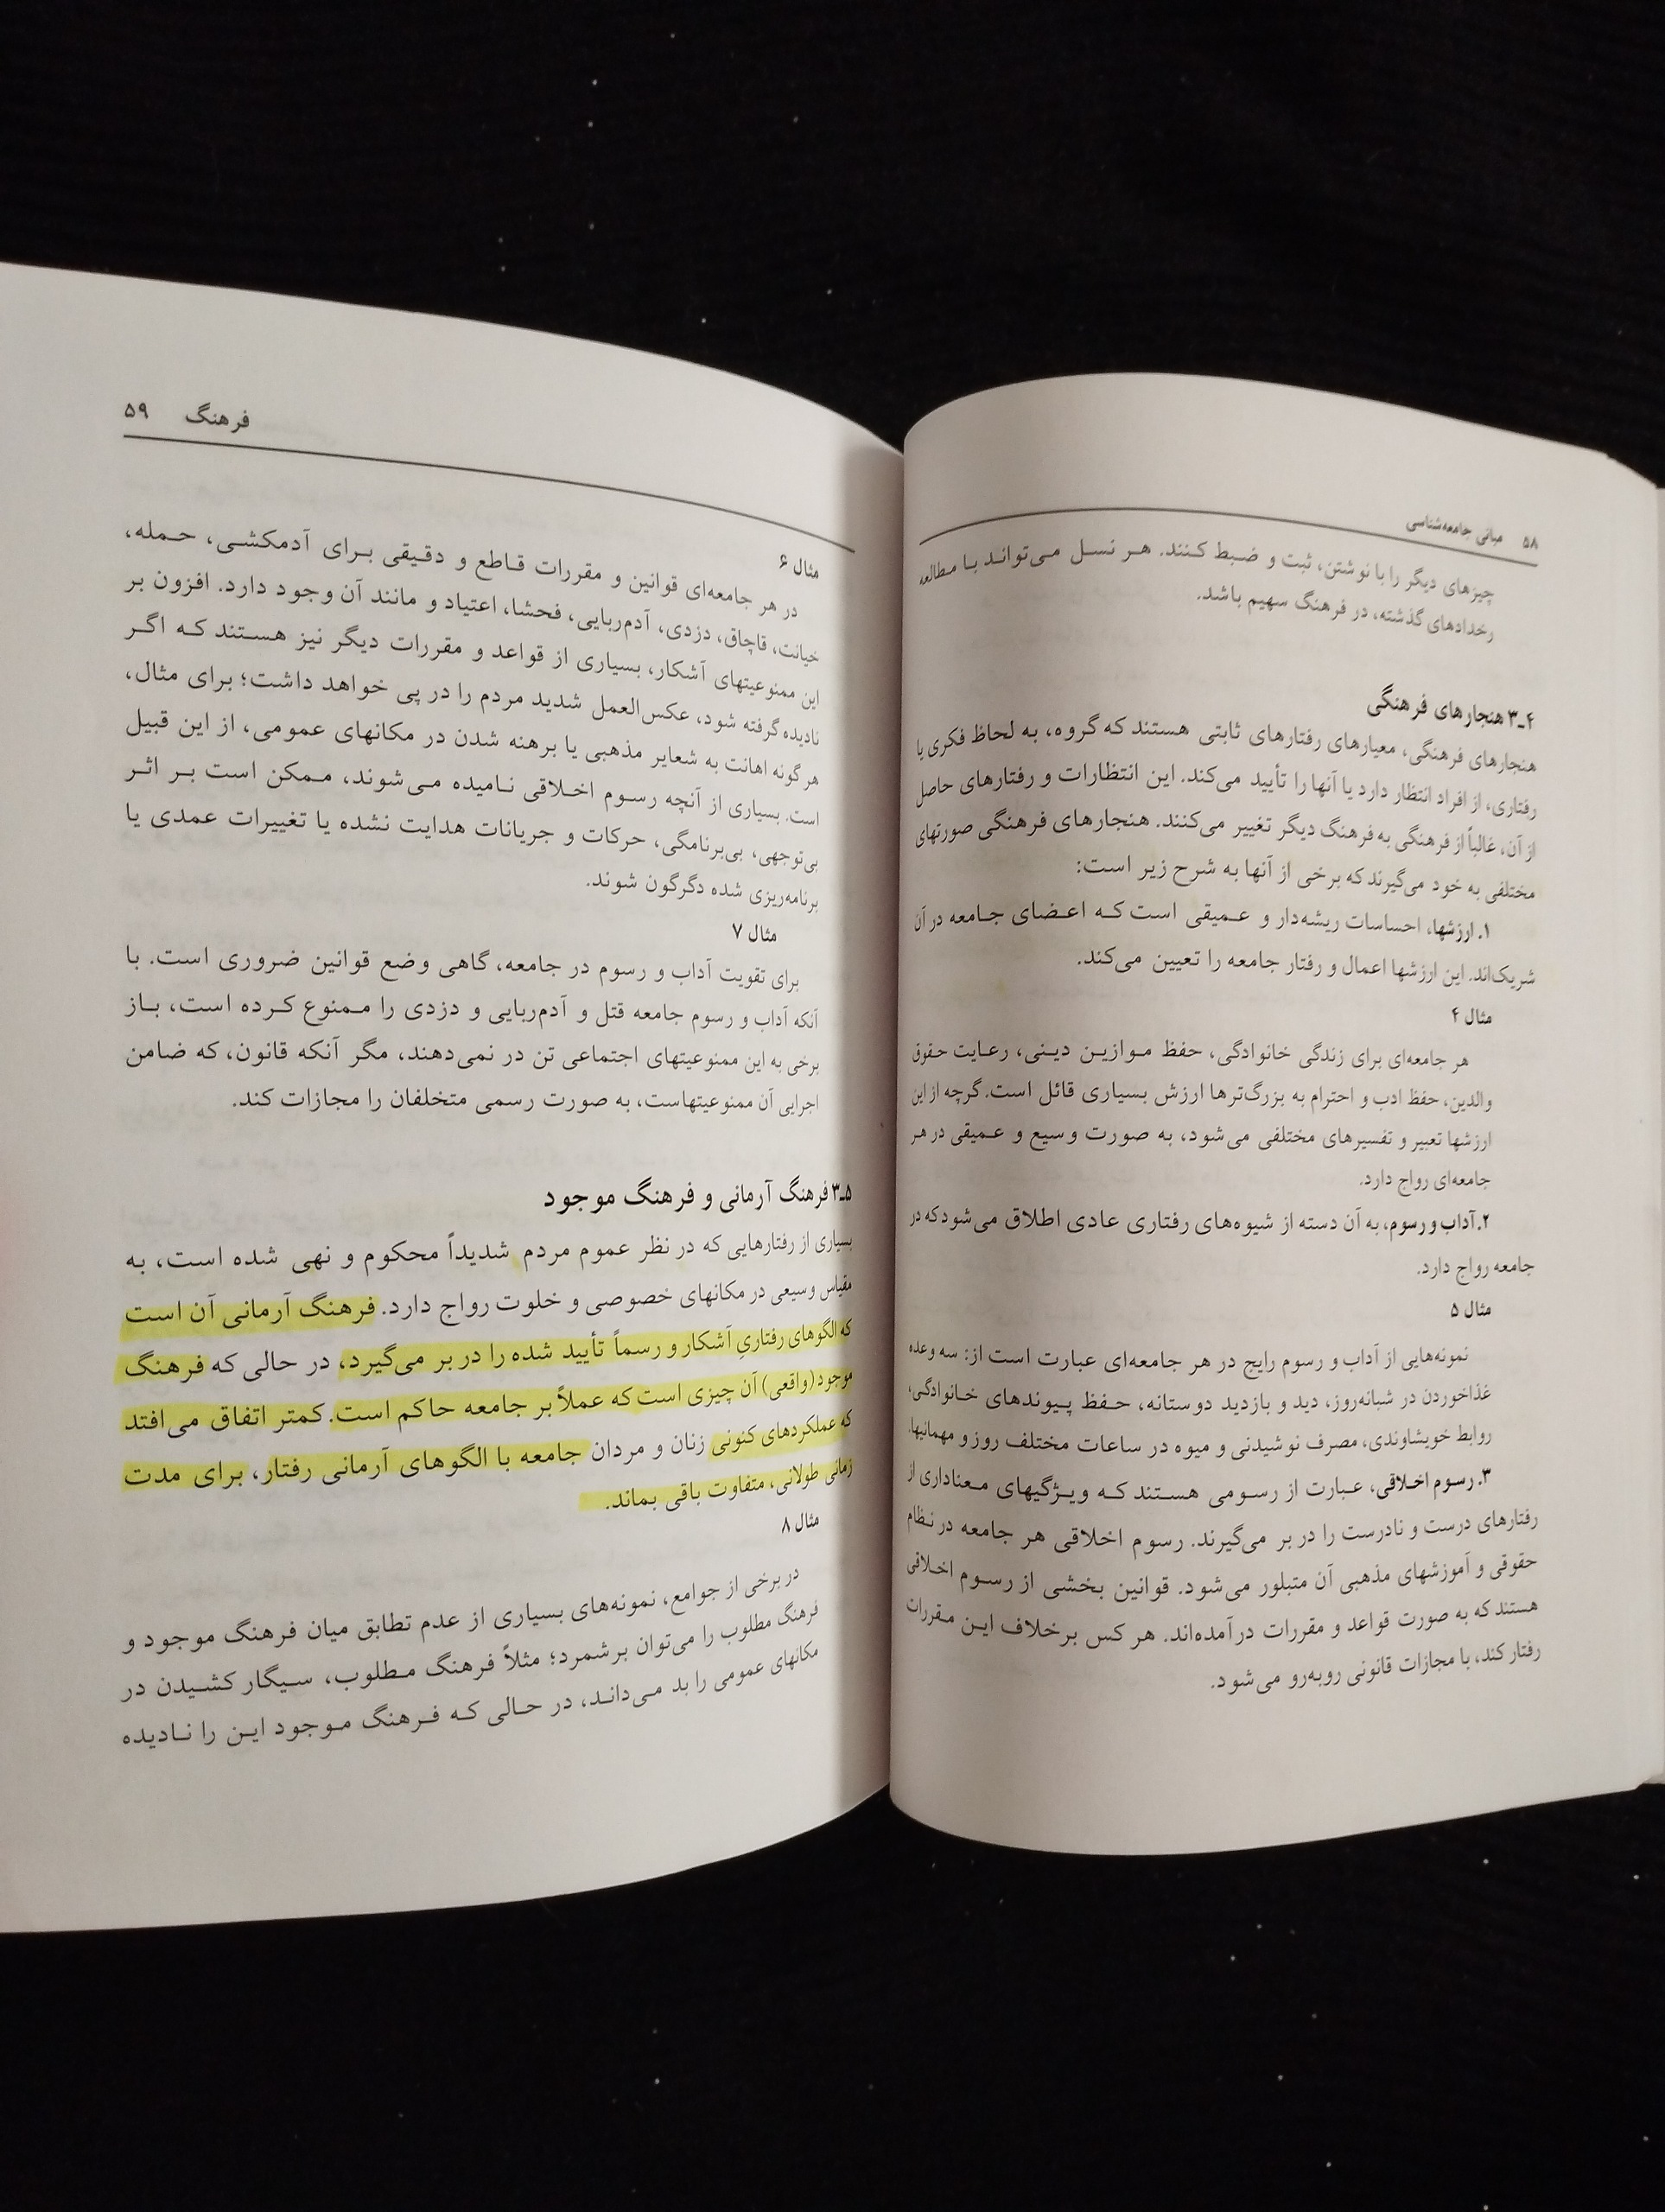 ۵۸ مبانی جامعه‌شناسی
چیزهای دیگر را با نوشتن، ثبت و ضبط کنند. هر نسل می‌تواند با مطالعه
رخدادهای گذشته، در فرهنگ سهیم باشد.
۳ـ۴ هنجارهای فرهنگی
هنجارهای فرهنگی، معیارهای رفتارهای ثابتی هستند که گروه، به لحاظ فکری یا
رفتاری، از افراد انتظار دارد یا آنها را تأیید می‌کند. این انتظارات و رفتارهای حاصل
از آن، غالباً از فرهنگی به فرهنگ دیگر تغییر می‌کنند. هنجارهای فرهنگی صورتهای
مختلفی به خود می‌گیرند که برخی از آنها به شرح زیر است:
۱. ارزشها، احساسات ریشه‌دار و عمیقی است که اعضای جامعه در آن
شریک‌اند. این ارزشها اعمال و رفتار جامعه را تعیین می‌کند.
مثال ۴
هر جامعه‌ای برای زندگی خانوادگی، حفظ موازین دینی، رعایت حقوق
والدین، حفظ ادب و احترام به بزرگ‌ترها ارزش بسیاری قائل است. گرچه از این
ارزشها تعبیر و تفسیرهای مختلفی می‌شود، به صورت وسیع و عمیقی در هر
جامعه‌ای رواج دارد.
۲. آداب و رسوم، به آن دسته از شیوه‌های رفتاری عادی اطلاق می‌شود که در
جامعه رواج دارد.
مثال ۵
نمونه‌هایی از آداب و رسوم رایج در هر جامعه‌ای عبارت است از: سه وعده
غذاخوردن در شبانه‌روز، دید و بازدید دوستانه، حفظ پیوندهای خانوادگی،
روابط خویشاوندی، مصرف نوشیدنی و میوه در ساعات مختلف روز و مهمانیها.
۳. رسوم اخلاقی، عبارت از رسومی هستند که ویژگیهای معناداری از
رفتارهای درست و نادرست را در بر می‌گیرند. رسوم اخلاقی هر جامعه در نظام
حقوقی و آموزشهای مذهبی آن متبلور می‌شود. قوانین بخشی از رسوم اخلاقی
هستند که به صورت قواعد و مقررات درآمده‌اند. هر کس برخلاف این مقررات
رفتار کند، با مجازات قانونی روبه‌رو می‌شود.
فرهنگ ۵۹
مثال ۶
در هر جامعه‌ای قوانین و مقررات قاطع و دقیقی برای آدمکشی، حمله،
خیانت، قاچاق، دزدی، آدم‌ربایی، فحشا، اعتیاد و مانند آن وجود دارد. افزون بر
این ممنوعیتهای آشکار، بسیاری از قواعد و مقررات دیگر نیز هستند که اگر
نادیده گرفته شود، عکس‌العمل شدید مردم را در پی خواهد داشت؛ برای مثال،
هرگونه اهانت به شعایر مذهبی یا برهنه شدن در مکانهای عمومی، از این قبیل
است. بسیاری از آنچه رسوم اخلاقی نامیده می‌شوند، ممکن است بر اثر
بی‌توجهی، بی‌برنامگی، حرکات و جریانات هدایت نشده یا تغییرات عمدی یا
برنامه‌ریزی شده دگرگون شوند.
مثال ۷
برای تقویت آداب و رسوم در جامعه، گاهی وضع قوانین ضروری است. با
آنکه آداب و رسوم جامعه قتل و آدم‌ربایی و دزدی را ممنوع کرده است، باز
برخی به این ممنوعیتهای اجتماعی تن در نمی‌دهند، مگر آنکه قانون، که ضامن
اجرایی آن ممنوعیتهاست، به صورت رسمی متخلفان را مجازات کند.
۳ـ۵ فرهنگ آرمانی و فرهنگ موجود
بسیاری از رفتارهایی که در نظر عموم مردم شدیداً محکوم و نهی شده است، به
مقیاس وسیعی در مکانهای خصوصی و خلوت رواج دارد. فرهنگ آرمانی آن است
که الگوهای رفتاریِ آشکار و رسماً تأیید شده را در بر می‌گیرد، در حالی که فرهنگ
موجود (واقعی) آن چیزی است که عملاً بر جامعه حاکم است. کمتر اتفاق می‌افتد
که عملکردهای کنونی زنان و مردان جامعه با الگوهای آرمانی رفتار، برای مدت
زمانی طولانی، متفاوت باقی بماند.
مثال ۸
در برخی از جوامع، نمونه‌های بسیاری از عدم تطابق میان فرهنگ موجود و
فرهنگ مطلوب را می‌توان برشمرد؛ مثلاً فرهنگ مطلوب، سیگار کشیدن در
مکانهای عمومی را بد می‌داند، در حالی که فرهنگ موجود این را نادیده